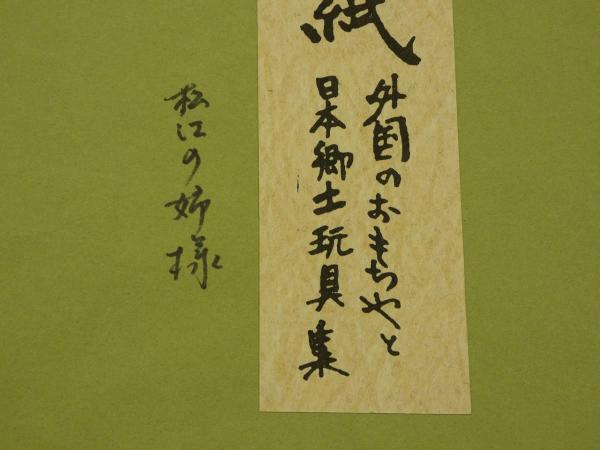 紙
外国のおもちやと
日本郷土玩具集
松江の姉様